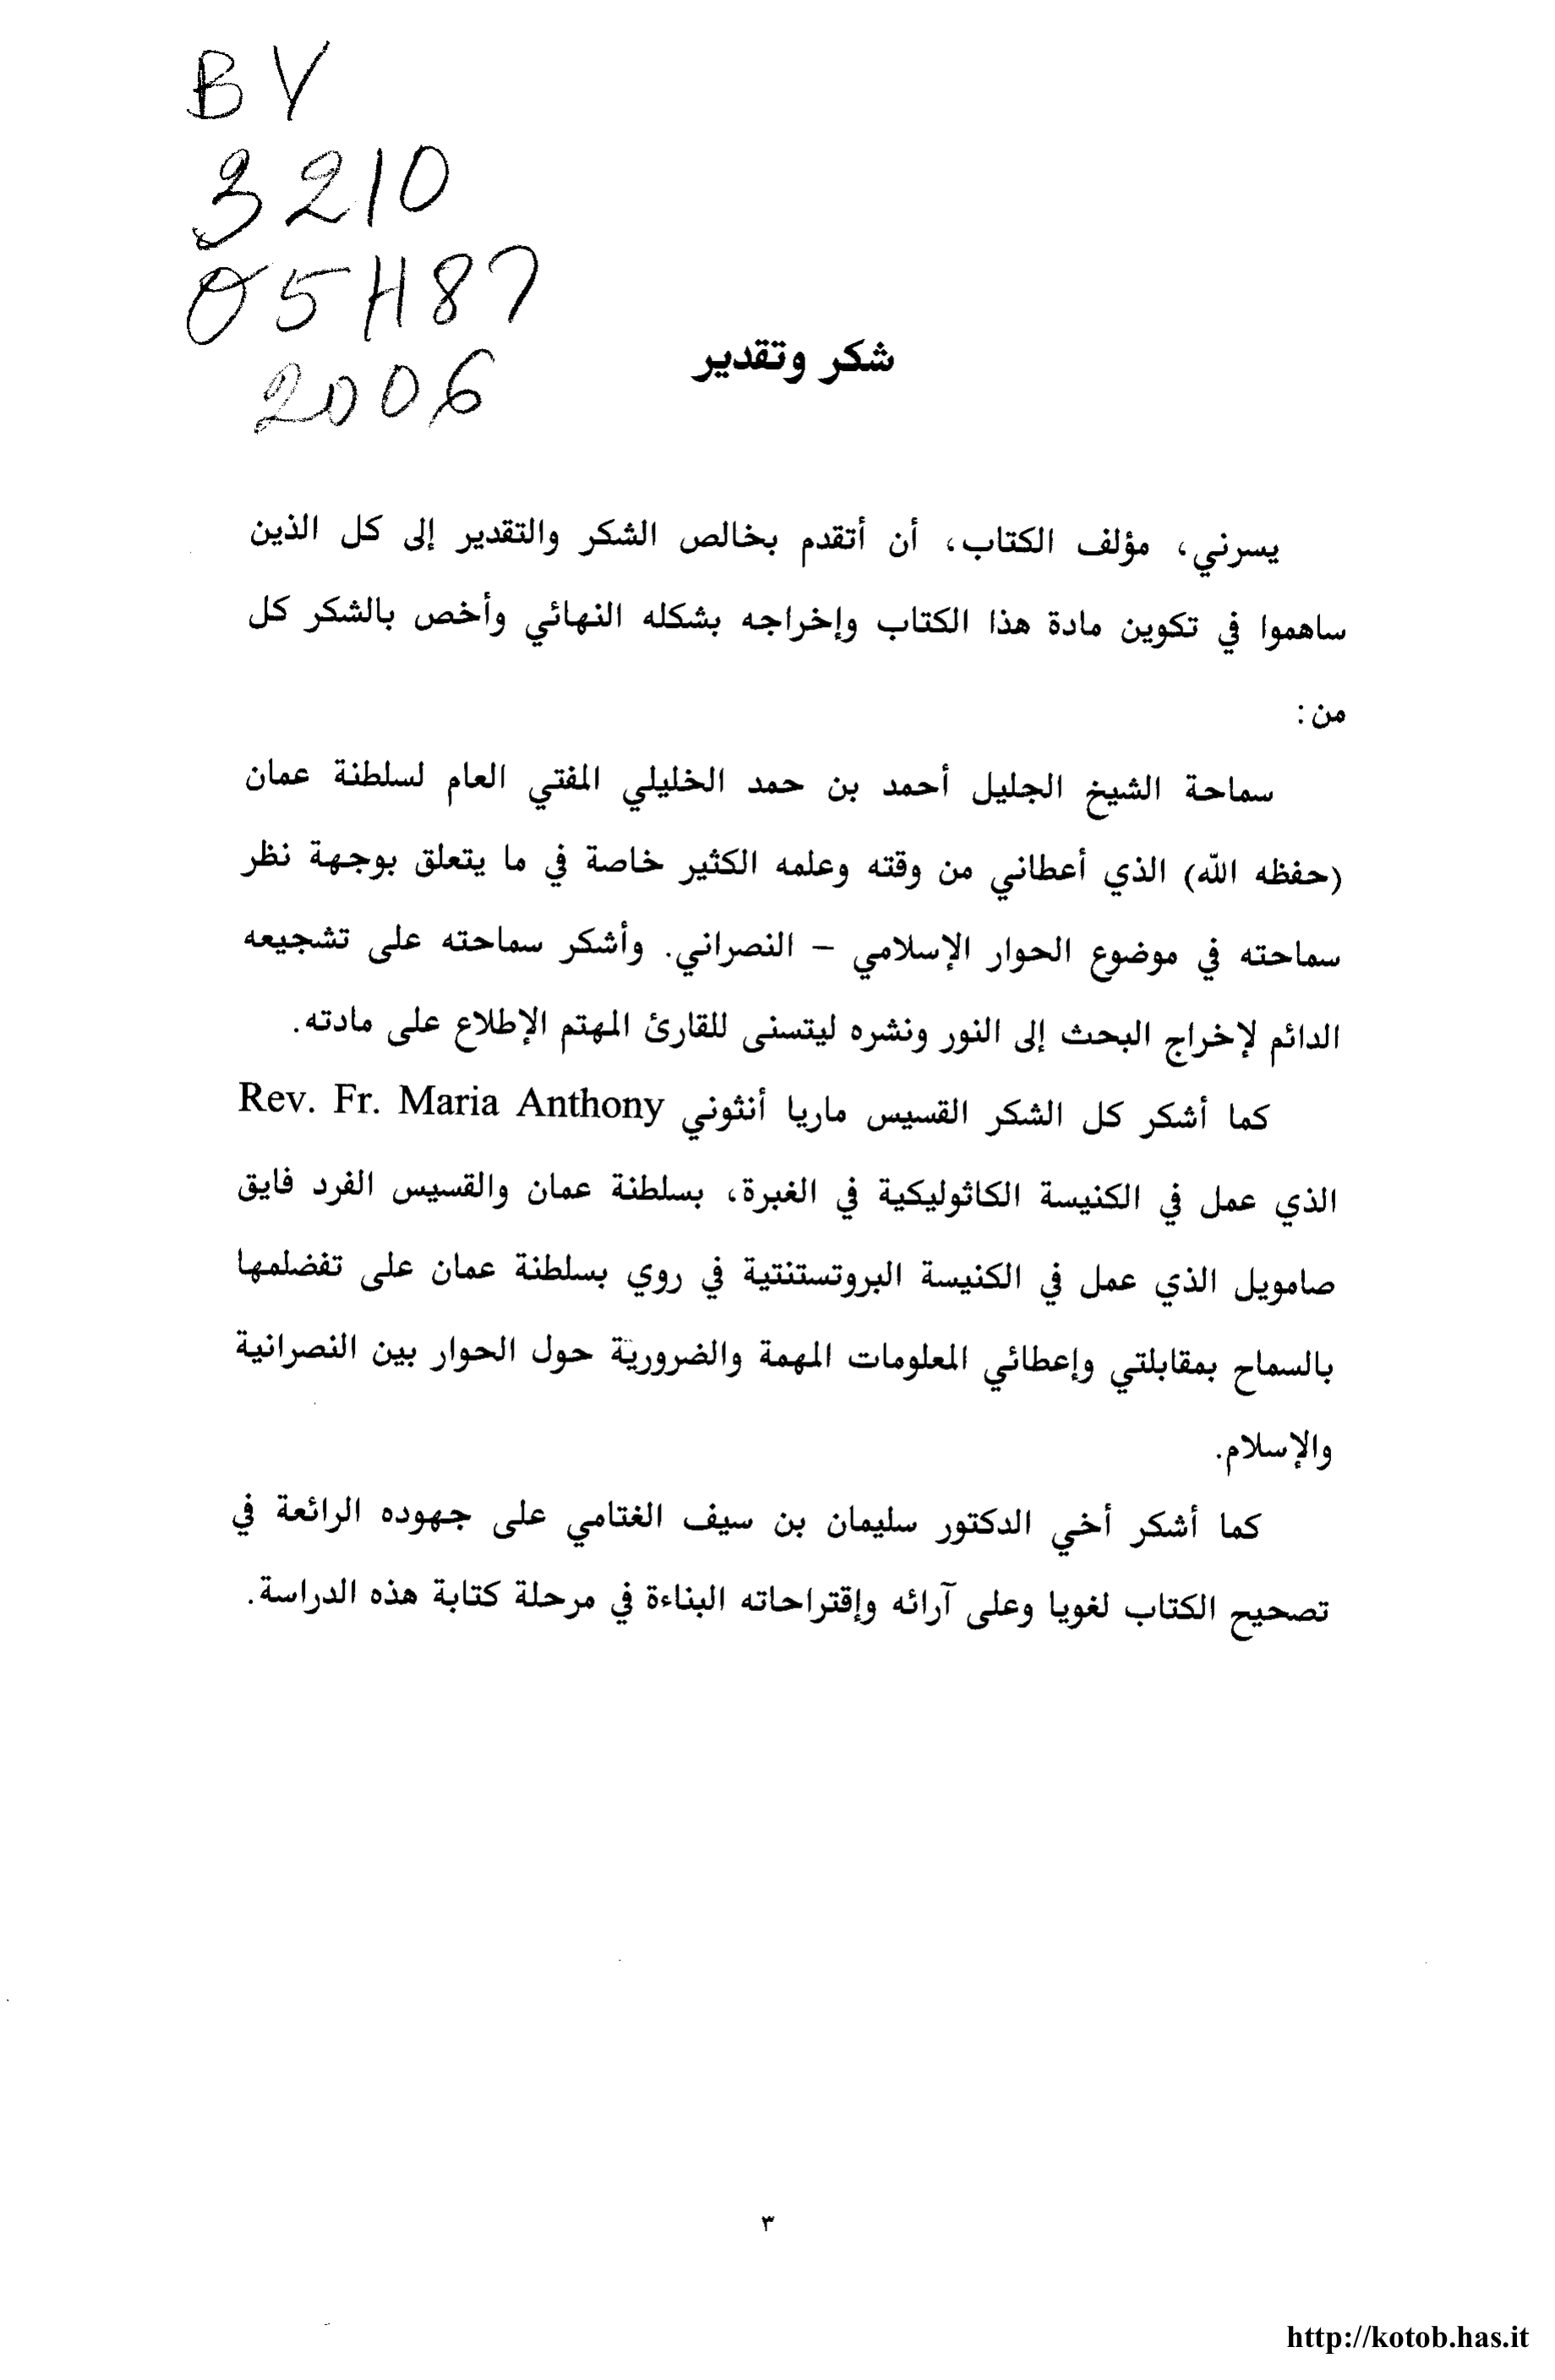 BV
3210
O5H87
2006
شكر وتقدير
يسرني، مؤلف الكتاب، أن أتقدم بخالص الشكر والتقدير إلى كل الذين
ساهموا في تكوين مادة هذا الكتاب وإخراجه بشكله النهائي وأخص بالشكر كل
من:
سماحة الشيخ الجليل أحمد بن حمد الخليلي المفتي العام لسلطنة عمان
(حفظه الله) الذي أعطاني من وقته وعلمه الكثير خاصة في ما يتعلق بوجهة نظر
سماحته في موضوع الحوار الإسلامي – النصراني. وأشكر سماحته على تشجيعه
الدائم لإخراج البحث إلى النور ونشره ليتسنى للقارئ المهتم الإطلاع على مادته.
كما أشكر كل الشكر القسيس ماريا أنثوني Rev. Fr. Maria Anthony
الذي عمل في الكنيسة الكاثوليكية في الغبرة، بسلطنة عمان والقسيس الفرد فايق
صامويل الذي عمل في الكنيسة البروتستنتية في روي بسلطنة عمان على تفضلمها
بالسماح بمقابلتي وإعطائي المعلومات المهمة والضرورية حول الحوار بين النصرانية
والإسلام.
كما أشكر أخي الدكتور سليمان بن سيف الغتامي على جهوده الرائعة في
تصحيح الكتاب لغويا وعلى آرائه وإقتراحاته البناءة في مرحلة كتابة هذه الدراسة.
٣
http://kotob.has.it